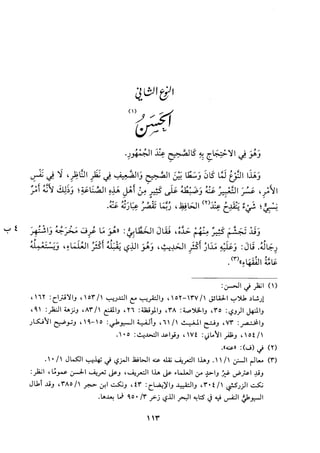 النوع الثاني
الحَسَنُ (١)
وَهُوَ فِي الاحْتِجَاجِ بِهِ كَالصَّحِيحِ عِنْدَ الجُمْهُورِ.
وَهَذَا النَّوْعُ لَمَّا كَانَ وَسَطًا بَيْنَ الصَّحِيحِ وَالضَّعِيفِ فِي نَظَرِ النَّاظِرِ، لَا فِي نَفْسِ
الأَمْرِ، عَسُرَ التَّعْبِيرُ عَنْهُ وَضَبْطُهُ عَلَى كَثِيرٍ مِنْ أَهْلِ هَذِهِ الصِّنَاعَةِ؛ وَذَلِكَ لأَنَّهُ أَمْرٌ
نِسْبِيٌّ؛ شَيْءٌ يَنْقَدِحُ عِنْدَ (٢) الحَافِظِ، رُبَّمَا تَقْصُرُ عِبَارَتُهُ عَنْهُ.
وَقَدْ تَجَشَّمَ كَثِيرٌ مِنْهُمْ حَدَّهُ، فَقَالَ الخَطَّابِيُّ: هُوَ مَا عُرِفَ مَخْرَجُهُ وَاشْتَهَرَ ٤ ب
رِجَالُهُ. قَالَ: وَعَلَيْهِ مَدَارُ أَكْثَرِ الحَدِيثِ، وَهُوَ الَّذِي يَقْبَلُهُ أَكْثَرُ العُلَمَاءِ، وَيَسْتَعْمِلُهُ
عَامَّةُ الفُقَهَاءِ (٣).
(١) انظر في الحسن:
إرشاد طلاب الحقائق ١/ ١٣٧-١٥٢، والتقريب مع التدريب ١/ ١٥٣، والاقتراح: ١٦٢،
والمنهل الروي: ٣٥، والخلاصة: ٣٨، والموقظة: ٢٦، والمقنع ١/ ٨٣، ونزهة النظر: ٩١،
والمختصر: ٧٣، وفتح المغيث ١/ ٦١، وألفية السيوطي: ١٥-١٩، وتوضيح الأفكار
١/ ١٥٤، وظفر الأماني: ١٧٤، وقواعد التحديث: ١٠٥.
(٢) في (ف): «عنه».
(٣) معالم السنن ١/ ١١. وهذا التعريف نقله عنه الحافظ المزي في تهذيب الكمال ١/ ١٠.
وقد اعترض غير واحد من العلماء على هذا التعريف، وعلى تعريف الحسن عموما، انظر:
نكت الزركشي ١/ ٣٠٤، والتقييد والإيضاح: ٤٣، ونكت ابن حجر ١/ ٣٨٥، وقد أطال
السيوطي النفس فيه في كتابه البحر الذي زخر ٣/ ٩٥٠ فما بعدها.
١١٣